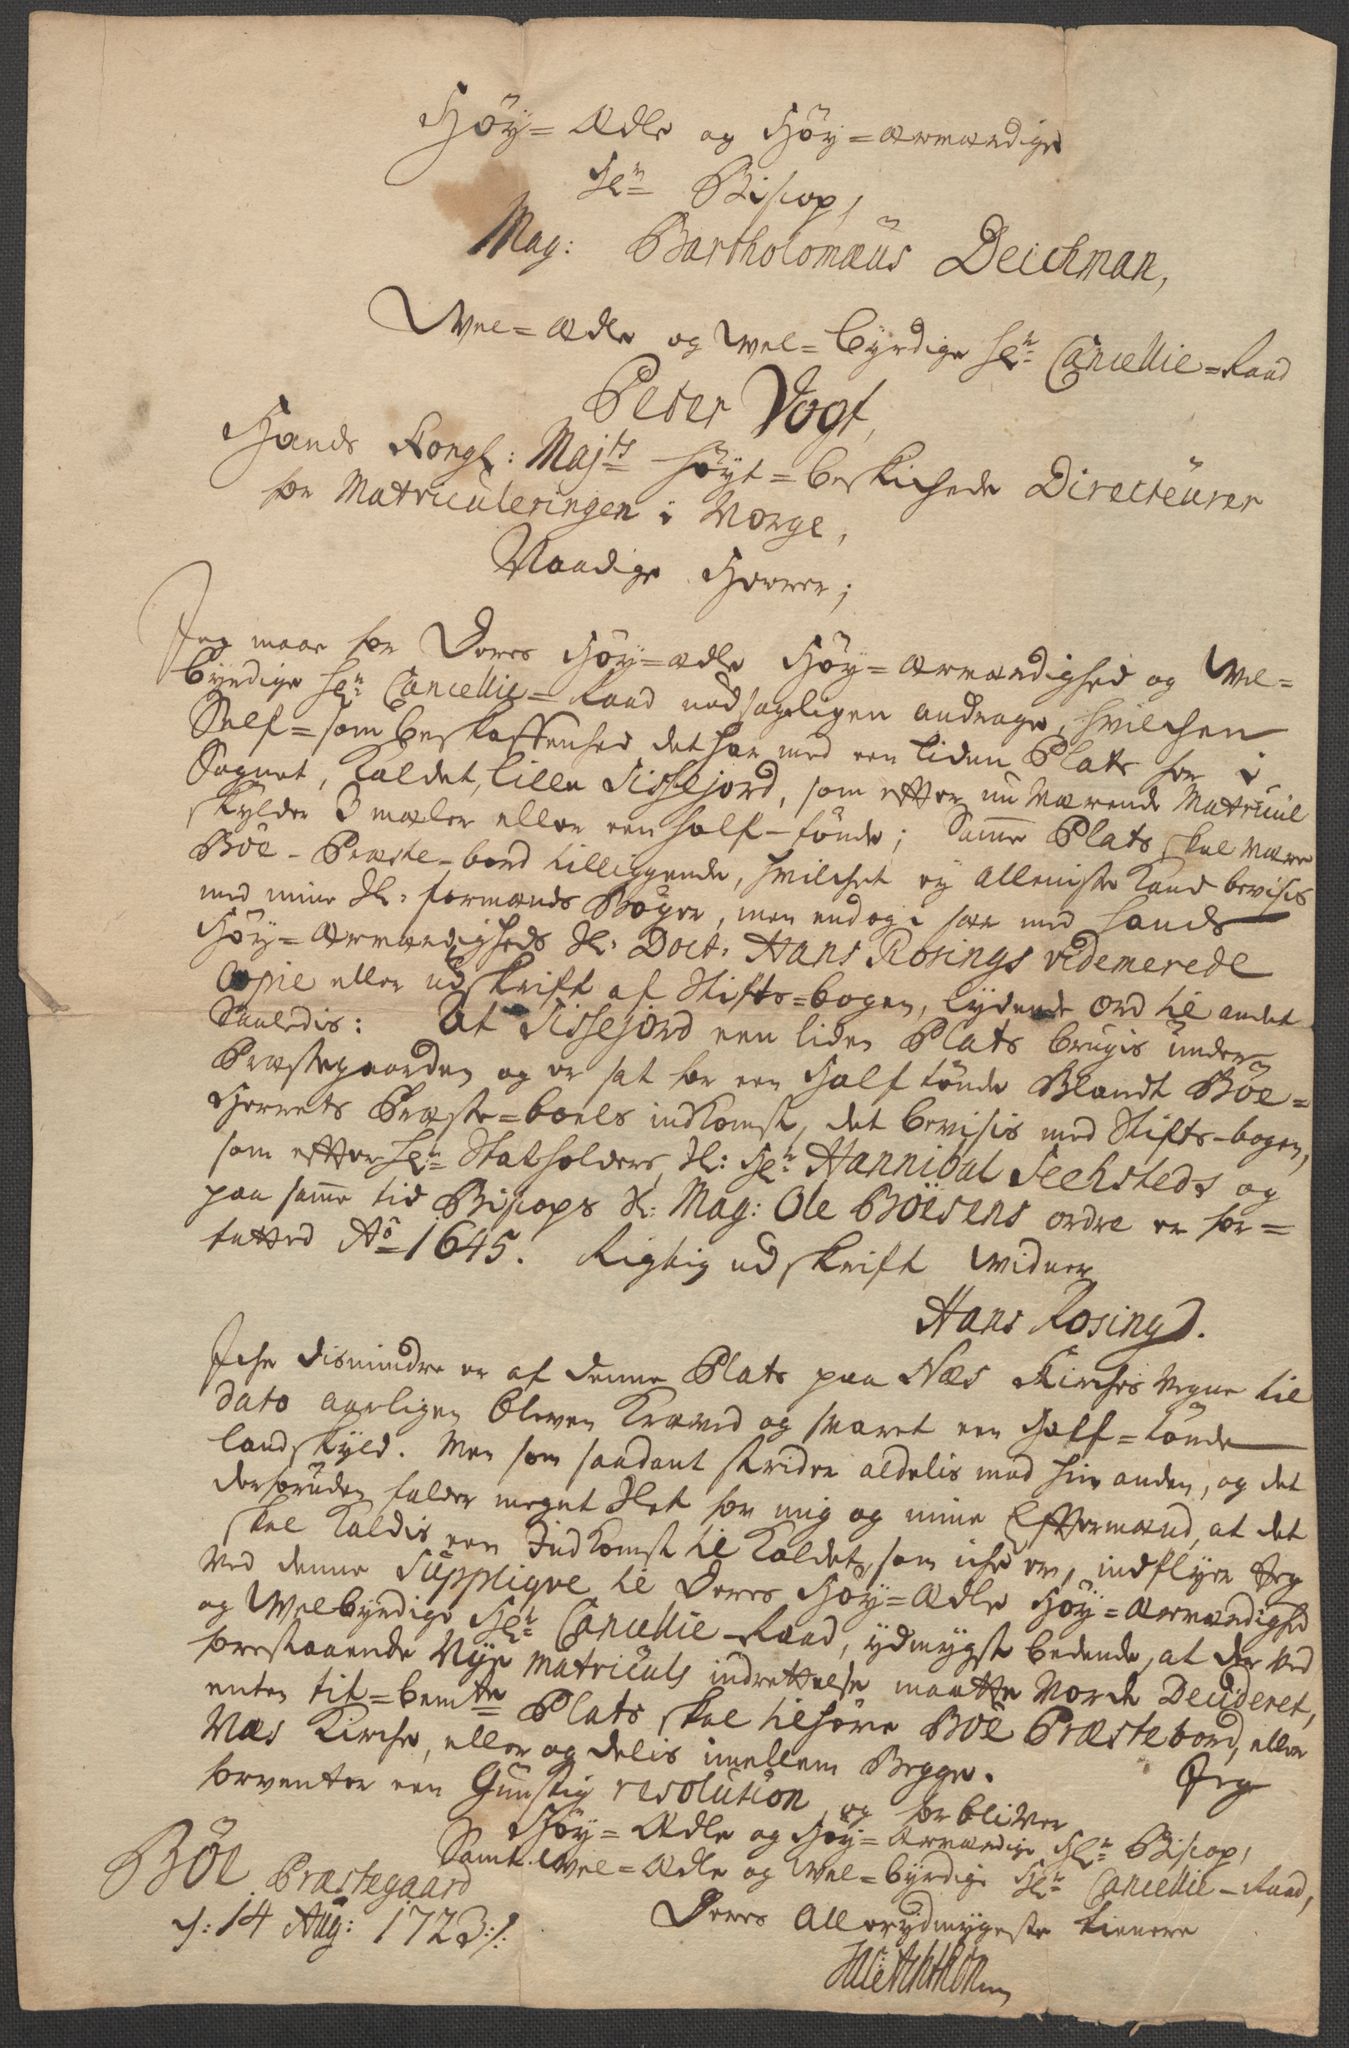 Høÿ=Ædle og Høÿ=ærværdige
Hr. Biscop,
Mag: Bartholomæus Deichman,
Vel=ædle og vel=byrdige Hr. Cancellie=Raad
Peter Vogt,
Hands Kongl: Majts høyt=beskichede Directeurer
for Matriculeringen i Norge,
Naadige Herrer;
Jeg maae for Deres Høÿ=ædle Høÿ=ærværdighed og Vel=
byrdige Hr. Cancellie=Raad nødsageligen andrage, hvilchen
Self=som beskaffenhed det har med een liden Plats her i
Sognet, kaldet, lille Sissejord, som efter nu værende Matricul
skylder 3 mæler eller een half-tønde; Samme Plats skal være
Böe-Præste-bord tilliggende, hvilchet ey alleniste kand bevisis
med mine Sl: formænds Bøger, men endog i sær med hands
Høÿ=ærværdigheds Sl: Doct: Hans Rosings videmerede
Copie eller udskrift af Stifts=bogen, lydende ord til andet
Saaledis: At Sissejord een liden Plats brugis under
Præstegaarden og er sat for een Half tønde Blandt Böe=
Herrets Præste=boels indkomst, det bevisis med Stifts-bogen,
som efter Hr. Statholders, Sl: Hr. Hannibal Seehsteds og
paa samme tid Biscops Sl: Mag: Ole Böesens ordre er for=
fatted Ao 1645. Rigtig udskrift vidner
Hans Rosing D.
Iche dismindre er af denne Plats paa Næs Kirches vegne til
dato aarligen bleven kræved og svaret een Half=tønde
landskyld. Men som saadant strider aldelis mod hin anden, og det
desforuden falder meget slet for mig og mine Eftermænd, at det
skal kaldis een Indkomst til kaldet, som iche er, indflyer Jeg
ved denne Supplique til Deres Høÿ=Ædle Høÿ=ærværdighed
og Velbyrdige Hr. Cancellie-Raad, ydmygst bedende, at der ved
forestaaende Nye Matriculs indrettelse maatte vorde Decideret,
enten tit=bemte Plats skal tilhøre Böe Præstebord, eller
Næs Kirche, eller og delis imellem Begge. Jeg
forventer een Gunstig resolution og forbliver
Høÿ=Ædle og Høÿ=ærværdige Hr. Biscop,
Samt Vel=ædle og vel=byrdige Hr. Cancellie-Raad,
Deres Allerydmygeste tienere
Böe Præstegaard
d: 14 Aug: 1723:/: